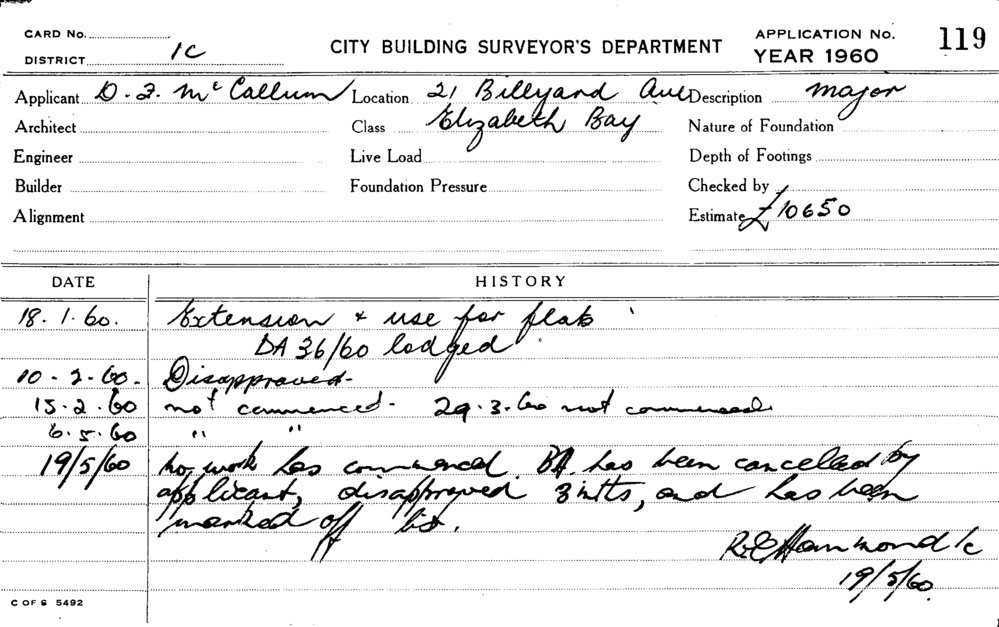 CARD No.
DISTRICT 1C
CITY BUILDING SURVEYOR'S DEPARTMENT
APPLICATION No. 119
YEAR 1960
Applicant D. F. McCallum Location 21 Billyard Ave Description major
Architect Class Elizabeth Bay Nature of Foundation
Engineer Live Load Depth of Footings
Builder Foundation Pressure Checked by
Alignment Estimate £10650
DATE HISTORY
18.1.60. Extension & use for flats
DA 36/60 lodged
10-2-60. Disapproved.
15.2.60 not commenced. 29.3.60 not commenced
6.5.60 " "
19/5/60 no work has commenced BA has been cancelled by
applicant, disapproved 3 mths, and has been
marked off list.
Hammond 1c
19/5/60.
C OF S 5492